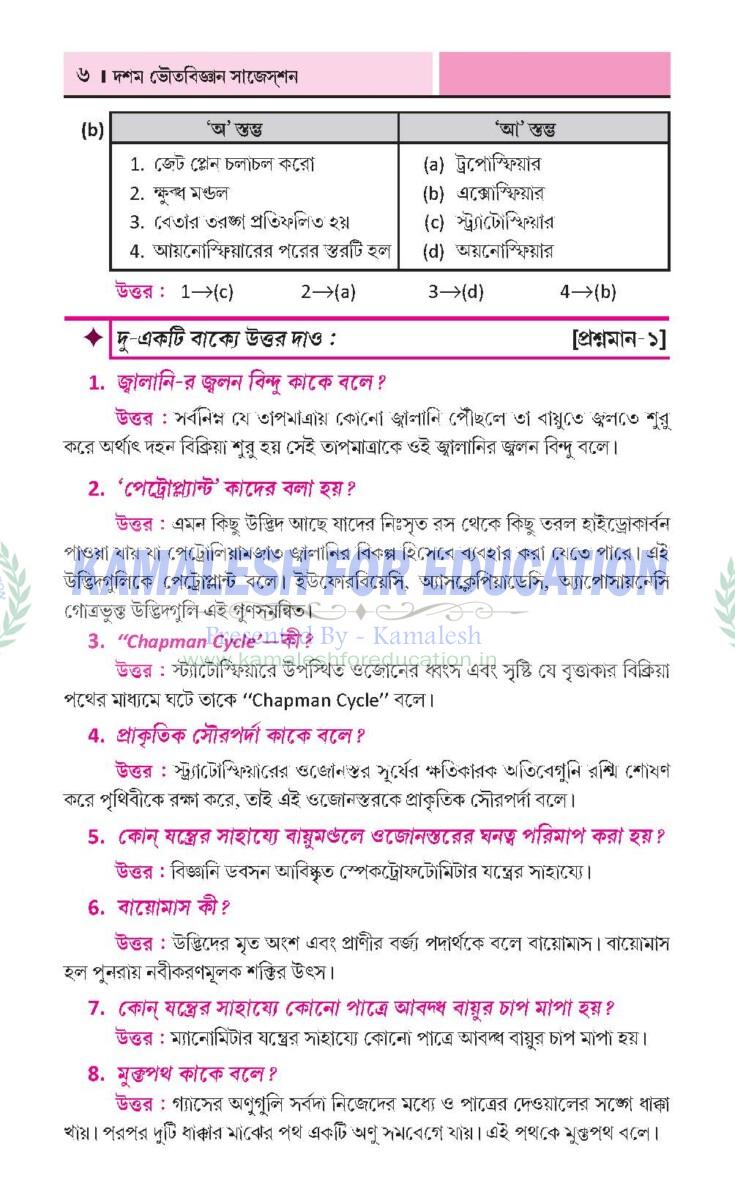 ৬ । দশম ভৌতবিজ্ঞান সাজেস্‌শন
(b) ‘অ’ স্তম্ভ ‘আ’ স্তম্ভ
1. জেট প্লেন চলাচল করো (a) ট্রপোস্ফিয়ার
2. ক্ষুব্ধ মণ্ডল (b) এক্সোস্ফিয়ার
3. বেতার তরঙ্গ প্রতিফলিত হয় (c) স্ট্র্যাটোস্ফিয়ার
4. আয়নোস্ফিয়ারের পরের স্তরটি হল (d) অয়নোস্ফিয়ার
উত্তর : 1→(c) 2→(a) 3→(d) 4→(b)
✦ দু-একটি বাক্যে উত্তর দাও : [প্রশ্নমান-১]
1. জ্বালানি-র জ্বলন বিন্দু কাকে বলে?
উত্তর : সর্বনিম্ন যে তাপমাত্রায় কোনো জ্বালানি পৌঁছলে তা বায়ুতে জ্বলতে শুরু
করে অর্থাৎ দহন বিক্রিয়া শুরু হয় সেই তাপমাত্রাকে ওই জ্বালানির জ্বলন বিন্দু বলে।
2. ‘পেট্রোপ্ল্যান্ট’ কাদের বলা হয়?
উত্তর : এমন কিছু উদ্ভিদ আছে যাদের নিঃসৃত রস থেকে কিছু তরল হাইড্রোকার্বন
পাওয়া যায় যা পেট্রোলিয়ামজাত জ্বালানির বিকল্প হিসেবে ব্যবহার করা যেতে পারে। এই
KAMALESH FOR EDUCATION
উদ্ভিদগুলিকে পেট্রোপ্লান্ট বলে। ইউফোরবিয়েসি, অ্যাসক্লেপিয়াডেসি, অ্যাপোসায়নেসি
গোত্রভুক্ত উদ্ভিদগুলি এই গুণসমন্বিত।
3. “Chapman Cycle”—কী?
Presented By - Kamalesh
www.kamaleshforeducation.in
উত্তর : স্ট্যাটোস্ফিয়ারে উপস্থিত ওজোনের ধ্বংস এবং সৃষ্টি যে বৃত্তাকার বিক্রিয়া
পথের মাধ্যমে ঘটে তাকে “Chapman Cycle” বলে।
4. প্রাকৃতিক সৌরপর্দা কাকে বলে?
উত্তর : স্ট্র্যাটোস্ফিয়ারের ওজোনস্তর সূর্যের ক্ষতিকারক অতিবেগুনি রশ্মি শোষণ
করে পৃথিবীকে রক্ষা করে, তাই এই ওজোনস্তরকে প্রাকৃতিক সৌরপর্দা বলে।
5. কোন্ যন্ত্রের সাহায্যে বায়ুমণ্ডলে ওজোনস্তরের ঘনত্ব পরিমাপ করা হয়?
উত্তর : বিজ্ঞানি ডবসন আবিষ্কৃত স্পেকট্রোফটোমিটার যন্ত্রের সাহায্যে।
6. বায়োমাস কী?
উত্তর : উদ্ভিদের মৃত অংশ এবং প্রাণীর বর্জ্য পদার্থকে বলে বায়োমাস। বায়োমাস
হল পুনরায় নবীকরণমূলক শক্তির উৎস।
7. কোন্ যন্ত্রের সাহায্যে কোনো পাত্রে আবদ্ধ বায়ুর চাপ মাপা হয়?
উত্তর : ম্যানোমিটার যন্ত্রের সাহায্যে কোনো পাত্রে আবদ্ধ বায়ুর চাপ মাপা হয়।
8. মুক্তপথ কাকে বলে?
উত্তর : গ্যাসের অণুগুলি সর্বদা নিজেদের মধ্যে ও পাত্রের দেওয়ালের সঙ্গে ধাক্কা
খায়। পরপর দুটি ধাক্কার মাঝের পথ একটি অণু সমবেগে যায়। এই পথকে মুক্তপথ বলে।